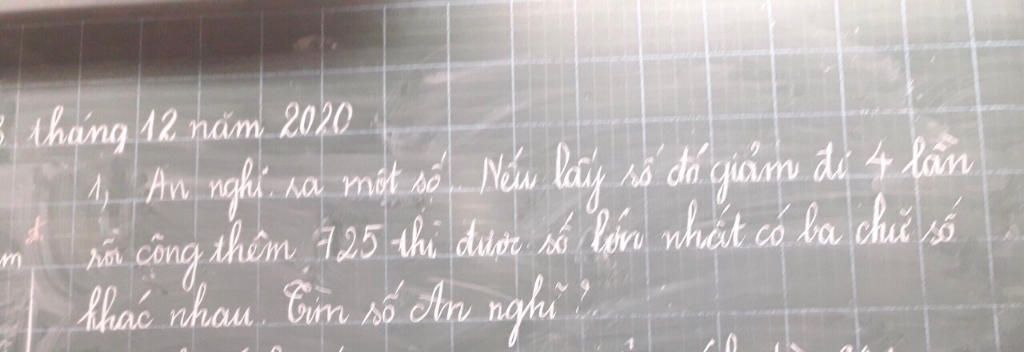 tháng 12 năm 2020
1, An nghĩ ra một số. Nếu lấy số đó giảm đi 4 lần
rồi cộng thêm 725 thì được số lớn nhất có ba chữ số
khác nhau. Tìm số An nghĩ?